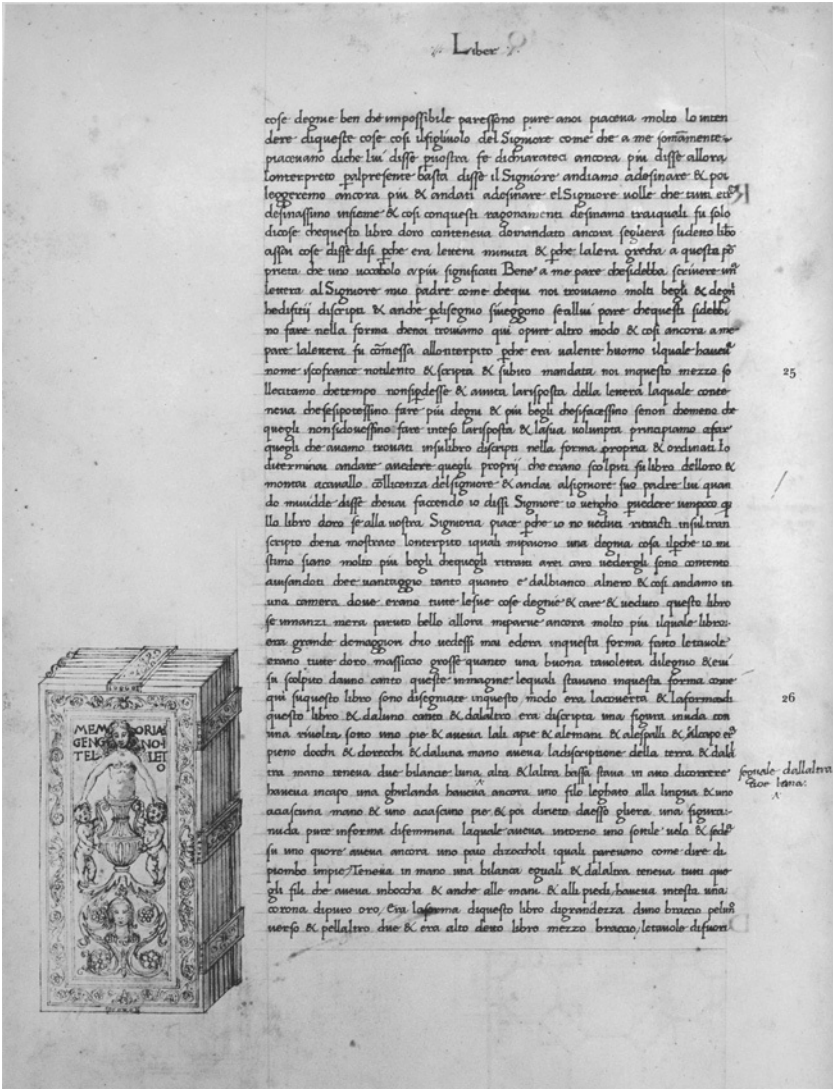 Liber
cose degne ben che impossibile paressono pure anoi piaceva molto lo inten
dere diqueste cose cosi ilfigliuolo del Signore come che a me
piacevano diche lui disse fe dichiarateci ancora piu disse allora
lonterpreto palpresente basta disse il Signore andiamo adesinare & poi
leggeremo ancora piu & andati adesinare el Signore volle che tutti
desinassimo insieme & cosi conquesti ragonamenti desinamo traiquali fu solo
dicose chequesto libro doro conteneva domandato ancora sudetto
assai cose disse disi pche era lettera minuta & pche lalera grecha a questa
prieta che uno vocabolo a piu significati Bene a me pare chesidebba scrivere
lettera al Signore mio padre come chequi noi troviamo molti begli &
hedifitij discripti & anche pdisegno siveggono seallui pare chequesti sidebbi
no fare nella forma chenoi troviamo qui opure altro modo & cosi ancora a me
pare lalettera fu commessa pche era valente huomo ilquale
nome iscofrance notilento & scripta & subito mandata noi inquesto mezzo so
llecitamo chetempo & avuta larisposta della lettera laquale conte
neva chesesipotessino fare piu degni & piu begli chesifacessino senon chomeno che
quegli nonsidovessino fare inteso larisposta & lasua volunpta principiamo afar
quegli che avamo trovati insulibro discripti nella forma propria & ordinati Io
diterminai andare avedere quegli proprij che erano scolpiti su libro delloro &
montai acavallo collicenza delsignore & andai alsignore suo padre lui quan
do mividde disse chevai faccendo io dissi Signore io vengho pvedere
llo libro doro se alla vostra Signoria piace pche io no veduti ritracti insul tran
scripto chena mostrato lonterpito iquali mipaiono una degnia cosa ilpche io mi
stimo siano molto piu begli chequegli ritratti arei caro vedergli sono contento
avisandoti chee vantaggio tanto quanto e dalbianco alnero & cosi andamo in
una camera dove erano tutte lesue cose degnie & care & veduto questo libro
se innanzi mera paruto bello allora miparve ancora molto piu ilquale libro
era grande demaggiori chio vedessi mai edera inquesta forma fatto letavole
erano tutte doro massiccio grosse quanto una buona tavoletta dilegno &
su scolpito dauno canto queste inmagine lequali stavano inquesta forma come
qui suquesto libro sono disegniate inquesto modo era lacoverta & laforma
questo libro & daluno canto & dalaltro era discripta una figura inuda con
una rivolta sotto uno pie & aveva lali apie & alemani & alespalli &
pieno docchi & dorecchi & daluna mano aveva ladiscriptione della terra &
tra mano teneva due bilancie luna alta & laltra bassa stava in atto dicorrere
haveva incapo una ghirlanda haveva ancora uno filo leghato alla lingua & uno
aciascuna mano & uno aciascuno pie & poi dirieto daesso una figura
nuda pure informa difemmina laquale aveva intorno uno sottile velo &
su uno quore aveva ancora uno paio dizoccholi iquali parevano come dire di
piombo impie Teneva in mano una bilancia equali & dalaltra teneva tutti que
gli fili che aveva inboccha & anche alle mani & alli piedi haveva intesta una
corona dipuro oro Era laforma diquesto libro digrandezza duno braccio
verso & pellaltro due & era alto detto libro mezzo braccio letavole difuori
25
26
segnale dallaltra
MEMORIA